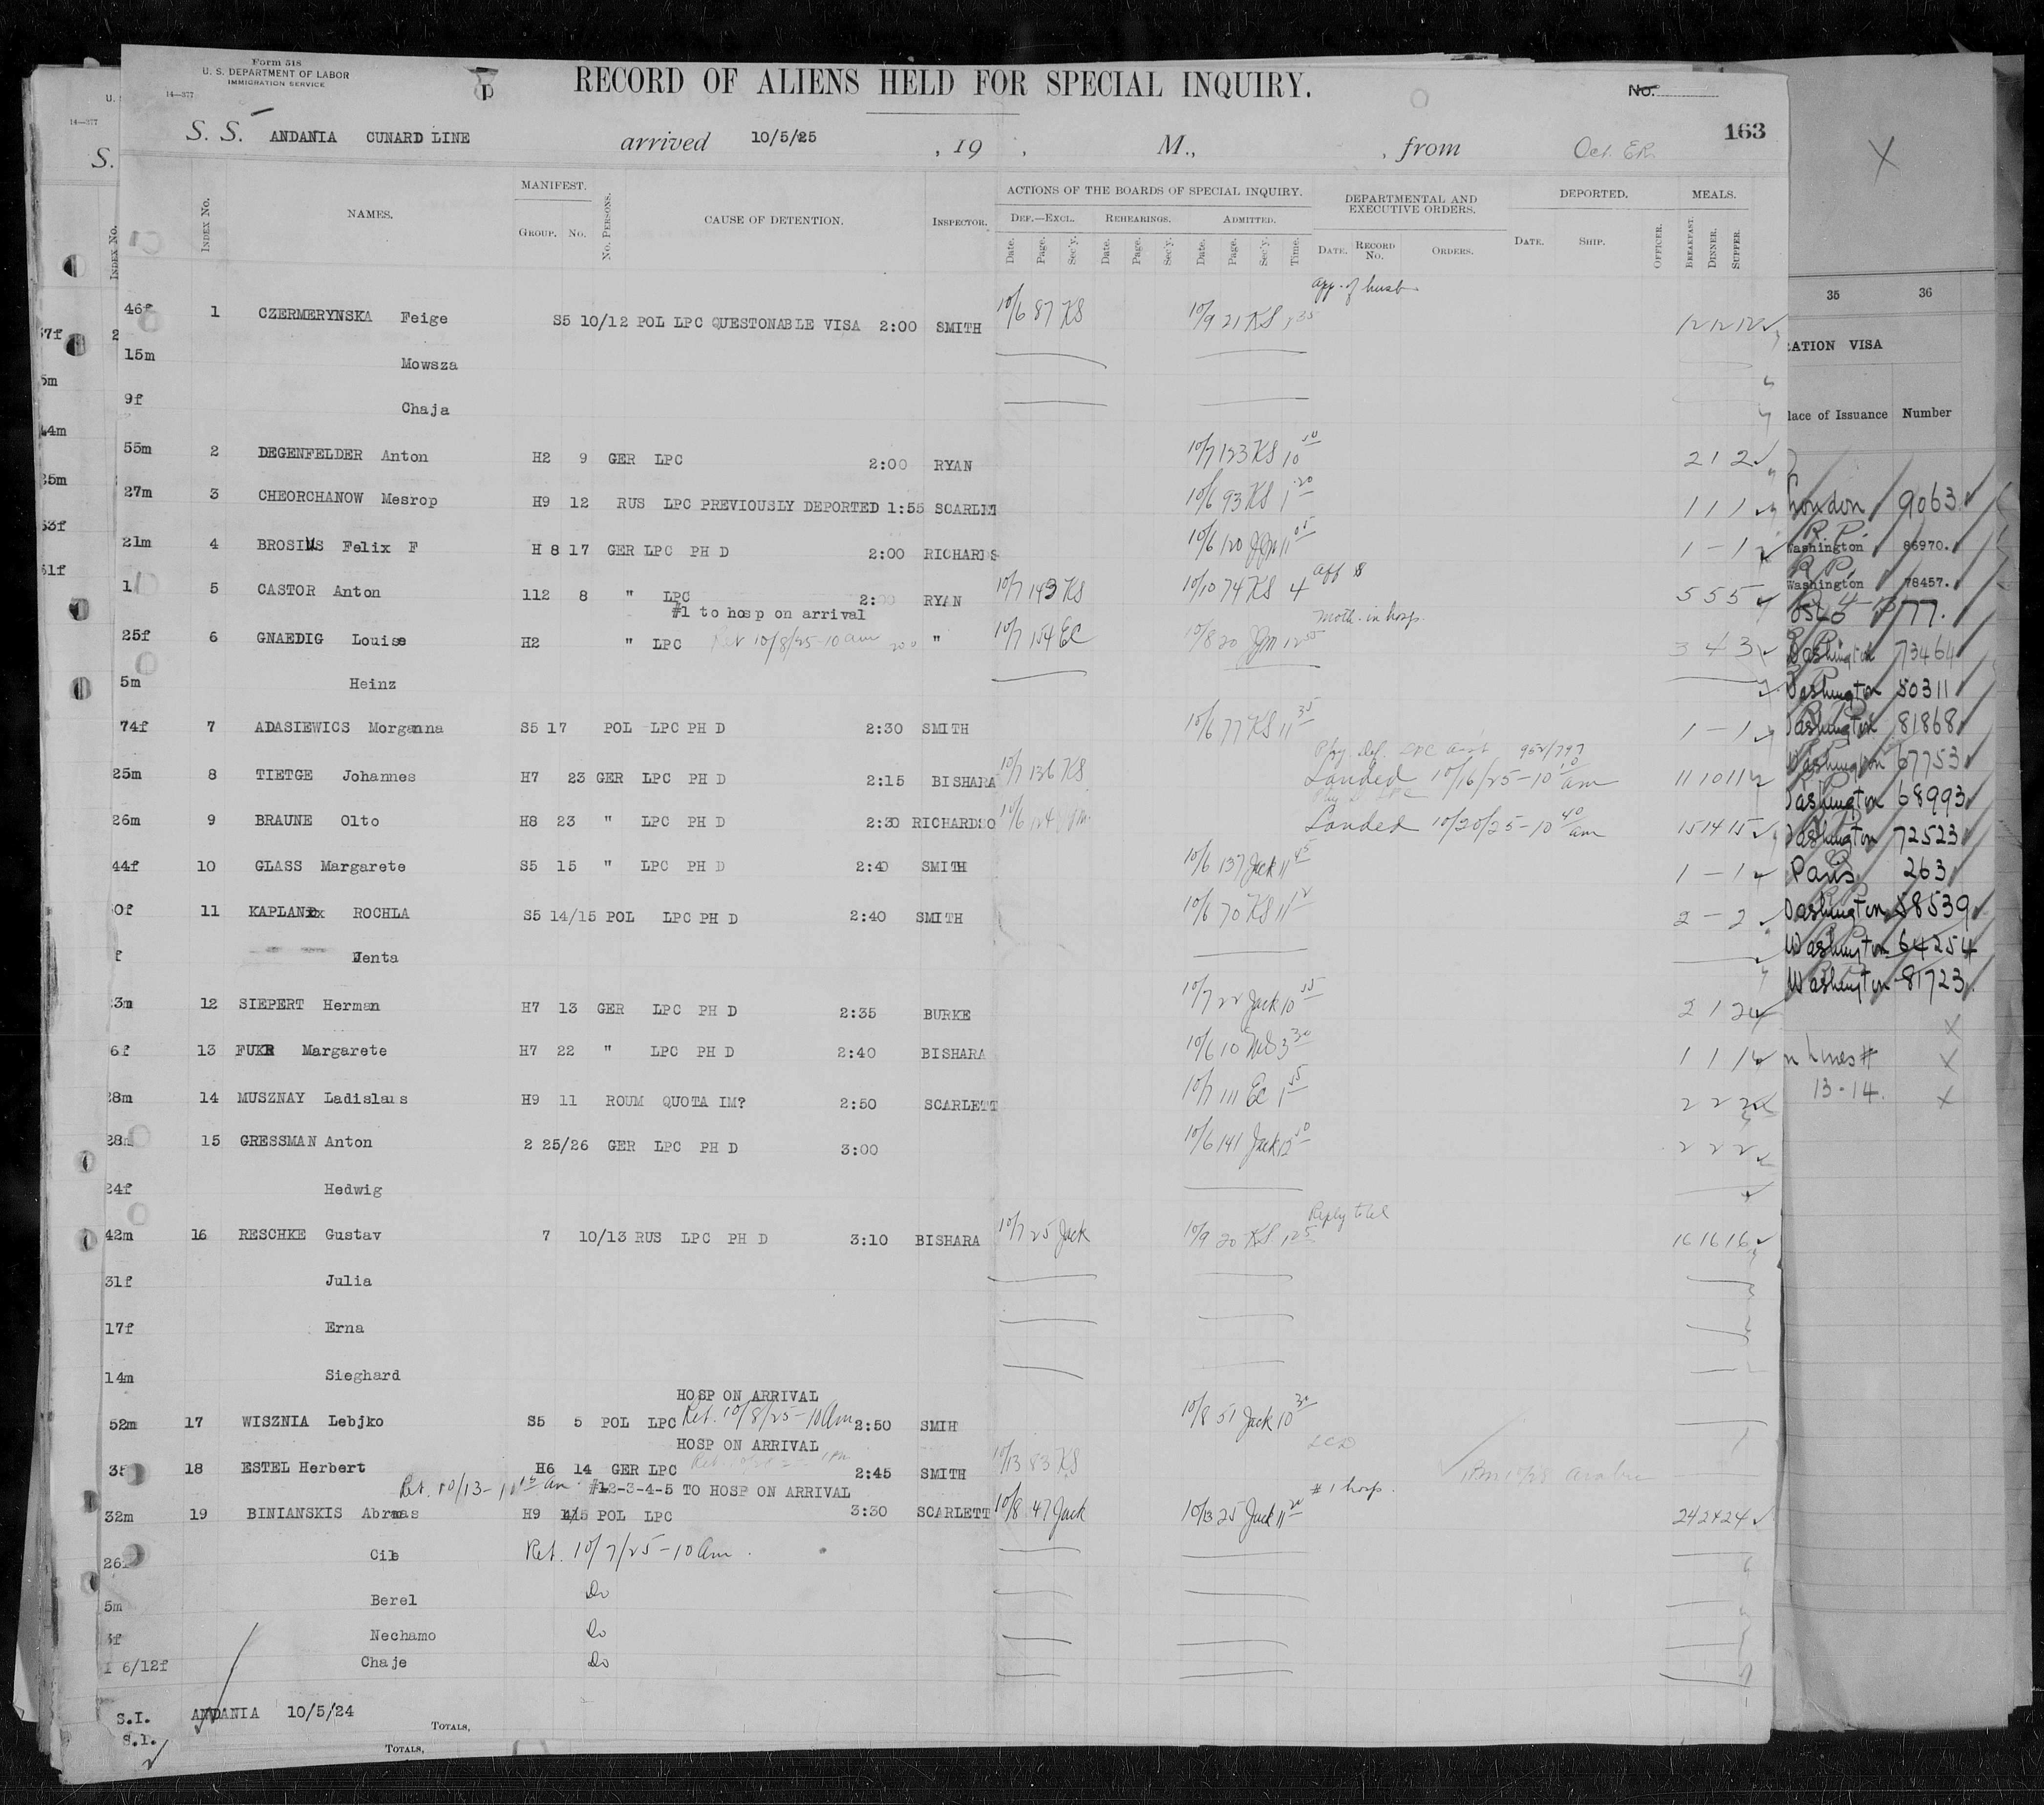 Form 518
U. S. DEPARTMENT OF LABOR
IMMIGRATION SERVICE
14—377
RECORD OF ALIENS HELD FOR SPECIAL INQUIRY.
No.
163
S. S. ANDANIA CUNARD LINE arrived 10/5/25, 19 , M., , from
INDEX No. NAMES. MANIFEST. GROUP. No. No. PERSONS. CAUSE OF DETENTION. INSPECTOR. ACTIONS OF THE BOARDS OF SPECIAL INQUIRY. DEPARTMENTAL AND EXECUTIVE ORDERS. DEPORTED. MEALS.
DEF.—EXCL. REHEARINGS. ADMITTED.
Date. Page. Sec'y. Date. Page. Sec'y. Date. Page. Sec'y. Time. DATE. RECORD No. ORDERS. DATE. SHIP. OFFICER. BREAKFAST. DINNER. SUPPER.
app. of husb
46f 1 CZERMERYNSKA Feige S5 10/12 POL LPC QUESTONABLE VISA 2:00 SMITH 10/6 87 KS 10/9 21 KS 1 35 12 12 12
15m Mowsza
9f Chaja
55m 2 DEGENFELDER Anton H2 9 GER LPC 2:00 RYAN 10/7 123 KS 10 50 2 1 2
27m 3 CHEORCHANOW Mesrop H9 12 RUS LPC PREVIOUSLY DEPORTED 1:55 SCARLET 10/6 93 KS 1 20 1 1 1
21m 4 BROSIUS Felix F H 8 17 GER LPC PH D 2:00 RICHARDS 10/6 120 JGM 11 05 1 – 1
5 CASTOR Anton 112 8 " LPC RYAN 10/7 143 KS 10/10 74 KS 4 aff 5 5 5
#1 to hosp on arrival
moth. in hosp.
25f 6 GNAEDIG Louise H2 " LPC Ret 10/8/25-10 am 200 " 10/7 154 EC 10/8 20 JGM 12 55 3 4 3
5m Heinz
74f 7 ADASIEWICS Morganna S5 17 POL LPC PH D 2:30 SMITH 10/6 77 KS 11 35 1 – 1
Phy. Def. LPC
25m 8 TIETGE Johannes H7 23 GER LPC PH D 2:15 BISHARA 10/7 136 KS Landed 10/16/25-10 10 am 11 10 11
26m 9 BRAUNE Olto H8 23 " LPC PH D 2:30 RICHARDSO 10/6 124 Landed 10/20/25-10 40 am 15 14 15
44f 10 GLASS Margarete S5 15 " LPC PH D 2:40 SMITH 10/6 137 Jack 11 45 1 – 1
0f 11 KAPLAN ROCHLA S5 14/15 POL LPC PH D 2:40 SMITH 10/6 70 KS 11 12 2 – 2
f Wenta
3m 12 SIEPERT Herman H7 13 GER LPC PH D 2:35 BURKE 10/7 22 Jack 10 55 2 1 2
6f 13 FUKR Margarete H7 22 " LPC PH D 2:40 BISHARA 10/6 10 3 30 1 1 1
28m 14 MUSZNAY Ladislaus H9 11 ROUM QUOTA IM? 2:50 SCARLETT 10/7 111 EC 1 55 2 2 2
28m 15 GRESSMAN Anton 2 25/26 GER LPC PH D 3:00 10/6 141 Jack 12 50 2 2 2
24f Hedwig
Reply to tel
42m 16 RESCHKE Gustav 7 10/13 RUS LPC PH D 3:10 BISHARA 10/7 25 Jack 10/9 20 KS 1 25 16 16 16
31f Julia
17f Erna
14m Sieghard
HOSP ON ARRIVAL
52m 17 WISZNIA Lebjko S5 5 POL LPC Ret. 10/8/25-10am 2:50 SMIH 10/8 51 Jack 10 30
HOSP ON ARRIVAL
35 18 ESTEL Herbert H6 14 GER LPC 2:45 SMITH 10/13 83 KS
Ret. 10/13- 11 15 am #12-3-4-5 TO HOSP ON ARRIVAL # 1 hosp.
32m 19 BINIANSKIS Abrmas H9 4/15 POL LPC 3:30 SCARLETT 10/8 47 Jack 10/13 25 Jack 11 20 24 24 24
26f Cile Ret. 10/7/25-10am.
5m Berel Do
3f Nechamo Do
1 6/12f Chaje Do
S.I. ANDANIA 10/5/24
TOTALS,
S.I.
TOTALS,
35 36
RATION VISA
lace of Issuance Number
London 9063
R.P.
Washington 86970.
R.P.
Washington 78457.
Oslo 77.
Washington 73464
Washington 50311
Washington 81868
Washington 67753
Washington 68993
Washington 72523
Paris 263
Washington 58539
Washington 64254
Washington 81723
n Lines #
13-14.